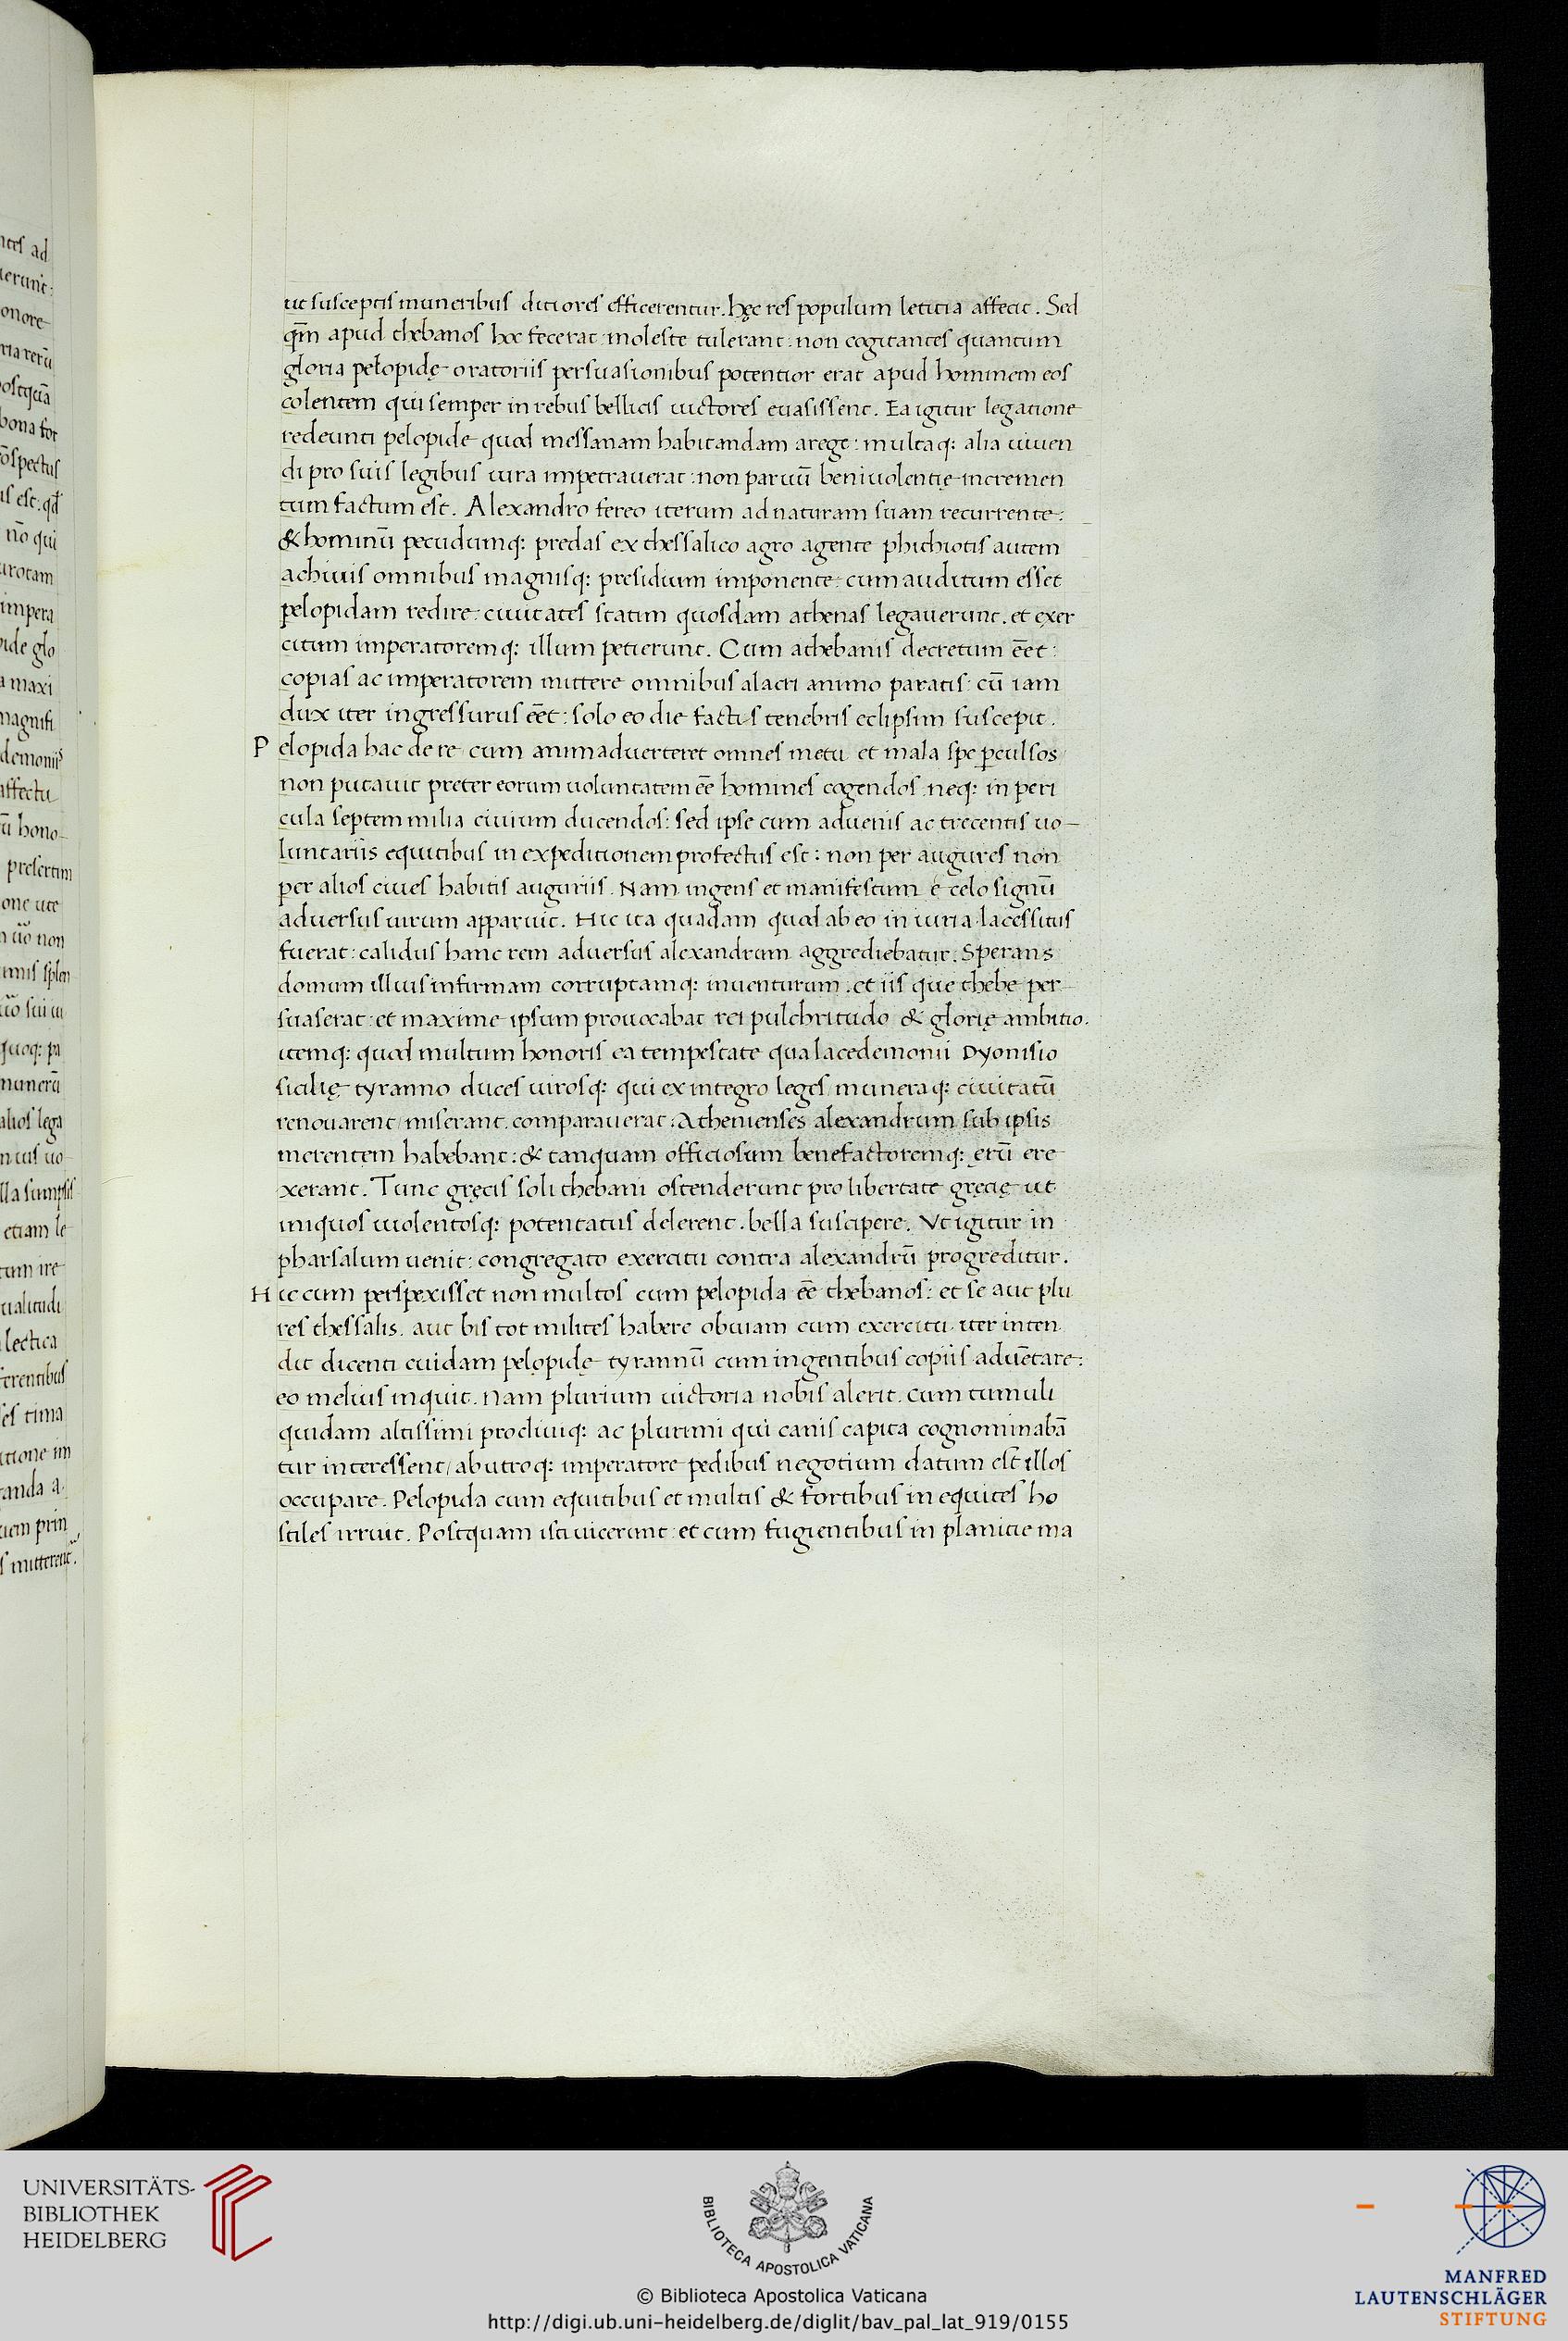 ut susceptis muneribus ditiores efficerentur. hęc res populum letitia affecit. Sed
qm̄ apud thebanos hoc fecerat: moleste tulerant: non cogitantes quantum
gloria pelopidę oratoriis persuasionibus potentior erat apud hominem eos
colentem qui semper in rebus bellicis victores evasissent. Ea igitur legatione
redeunti pelopide quod messanam habitandam arege: multaq: alia viven
di pro suis legibus iura impetraverat: non parvū benivolentię incremen
tum factum est. Alexandro fereo iterum ad naturam suam recurrente:
& hominū pecudumq: predas ex thessalico agro agente phthiotis autem
achivis omnibus magnisq: presidium imponente: cum auditum esset
pelopidam redire: civitates statim quosdam athenas legaverunt. et exer
citum imperatoremq: illum petierunt. Cum athebanis decretum eēt:
copias ac imperatorem mittere omnibus alacri animo paratis: cū iam
dux iter ingressurus eēt: solo eo die factis tenebris eclipsim suscepit.
Pelopida hac de re cum animadverteret omnes metu et mala spe perculsos
non putavit preter eorum voluntatem eē homines cogendos. neq: in peri
cula septem milia civium ducendos: sed ipse cum advenis ac trecentis vo-
luntariis equitibus in expeditionem profectus est: non per augures non
per alios cives habitis auguriis. Nam ingens et manifestum e celo signū
adversus virum apparuit. Hic ita quadam quod ab eo iniuria lacessitus
fuerat: calidus hanc rem adversus alexandrum aggrediebatur. Sperans
domum illius infirmam corruptamq: inventurum. et iis que thebe per
suaserat: et maxime ipsum provocabat rei pulchritudo & glorię ambitio.
itemq: quod multum honoris ea tempestate qua lacedemonii Dyonisio
sicilię tyranno duces virosq: qui ex integro leges muneraq: civitatū
renovarent/ miserant. comparaverat. Athenienses alexandrum sub ipsis
merentem habebant: & tanquam officiosum benefactoremq: ęrū ere
xerant. Tunc gręcis soli thebani ostenderunt pro libertate gręcię ut
iniquos violentosq: potentatus delerent. bella suscipere. Ut igitur in
pharsalum venit: congregato exercitu contra alexandrū progreditur.
Hic cum perspexisset non multos cum pelopida eē thebanos: et se aut plu
res thessalis. aut bis tot milites habere obviam cum exercitu iter inten
dit dicenti cuidam pelopidę tyrannū cum ingentibus copiis advētare:
eo melius inquit. Nam plurium victoria nobis alerit. cum tumuli
quidam altissimi proclivíq: ac plurimi qui canis capita cognominabā
tur interessent/ ab utroq: imperatore pedibus negotium datum est illos
occupare. Pelopida cum equitibus et multis & fortibus in equites ho
stiles irruit. Postquam isti vicerunt: et cum fugientibus in planitie ma
UNIVERSITÄTS-
BIBLIOTHEK
HEIDELBERG
BIBLIOTECA APOSTOLICA VATICANA
© Biblioteca Apostolica Vaticana
http://digi.ub.uni-heidelberg.de/diglit/bav_pal_lat_919/0155
MANFRED
LAUTENSCHLÄGER
STIFTUNG